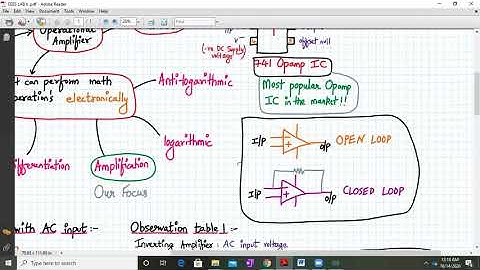 EEES LAB 6 .pdf - Adobe Reader
File Edit View Window Help
Operational
Amplifier
t can perform math
peration's electronically
Anti-logarithmic
logarithmic
ifferentiation
Amplification
Our Focus
V-
(-ve DC Supply)
voltage
offset null
741 Opamp IC
Most popular Opamp
IC in the market!!
I/P
O/P
OPEN LOOP
I/P
O/P
CLOSED LOOP
with AC input :-
Observation table 1 :-
Inverting Amplifier : AC input voltage.
Type here to search
12:10 AM
10/14/2020